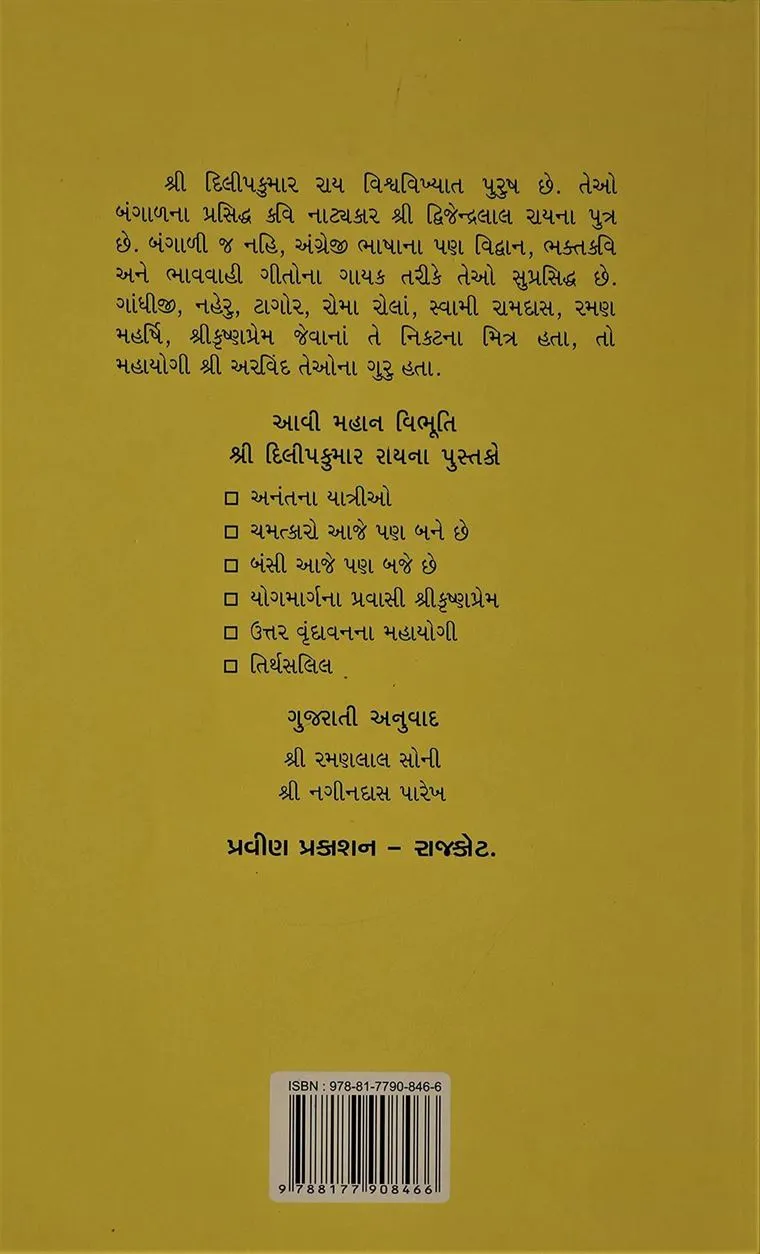 શ્રી દિલીપકુમાર રાય વિશ્વવિખ્યાત પુરુષ છે. તેઓ
બંગાળના પ્રસિદ્ધ કવિ નાટ્યકાર શ્રી દ્વિજેન્દ્રલાલ રાયના પુત્ર
છે. બંગાળી જ નહિ, અંગ્રેજી ભાષાના પણ વિદ્વાન, ભક્તકવિ
અને ભાવવાહી ગીતોના ગાયક તરીકે તેઓ સુપ્રસિદ્ધ છે.
ગાંધીજી, નહેરુ, ટાગોર, રોમા રોલાં, સ્વામી રામદાસ, રમણ
મહર્ષિ, શ્રીકૃષ્ણપ્રેમ જેવાનાં તે નિકટના મિત્ર હતા, તો
મહાયોગી શ્રી અરવિંદ તેઓના ગુરુ હતા.
આવી મહાન વિભૂતિ
શ્રી દિલીપકુમાર રાયના પુસ્તકો
□ અનંતના યાત્રીઓ
□ ચમત્કારો આજે પણ બને છે
□ બંસી આજે પણ બજે છે
□ યોગમાર્ગના પ્રવાસી શ્રીકૃષ્ણપ્રેમ
□ ઉત્તર વૃંદાવનના મહાયોગી
□ તિર્થસલિલ
ગુજરાતી અનુવાદ
શ્રી રમણલાલ સોની
શ્રી નગીનદાસ પારેખ
પ્રવીણ પ્રકાશન – રાજકોટ.
ISBN : 978-81-7790-846-6
9 788177 908466